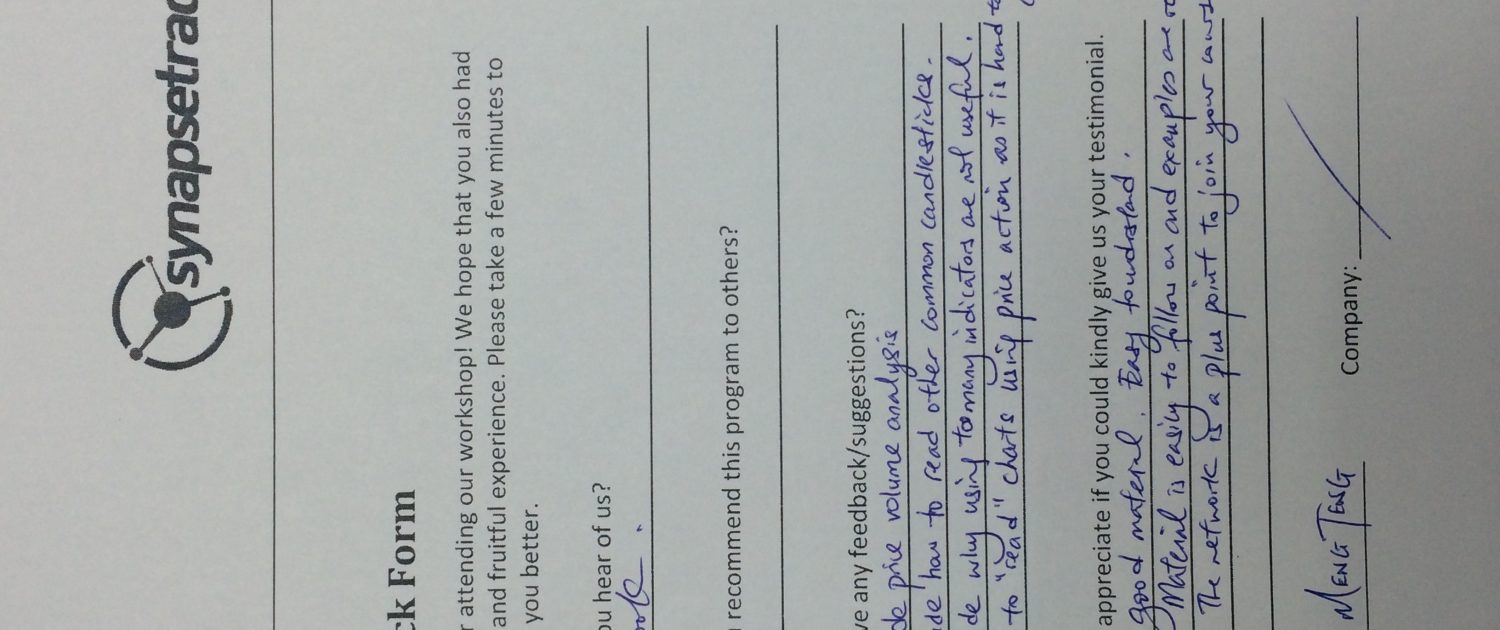 synapsetrad
ck Form
r attending our workshop! We hope that you also had
and fruitful experience. Please take a few minutes to
you better.
ou hear of us?
ook.
recommend this program to others?
ve any feedback/suggestions?
de price volume analysis
ude how to read other common candlesticks.
de why using too many indicators are not useful.
to "read" charts using price action as it is hard
appreciate if you could kindly give us your testimonial.
good material. Easy to understand.
Material is easily to follow on and examples are
The network is a plus point to join your
MENG TENG Company: